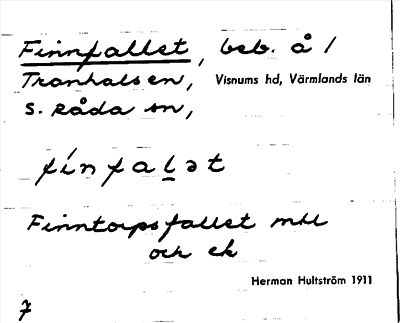 Finnfallet, beb. å /
Tranhalsen, Visnums hd, Värmlands län
S. Råda sn,
fínfaḷət
Finntorpsfallet mtl
och ek
Herman Hultström 1911
7